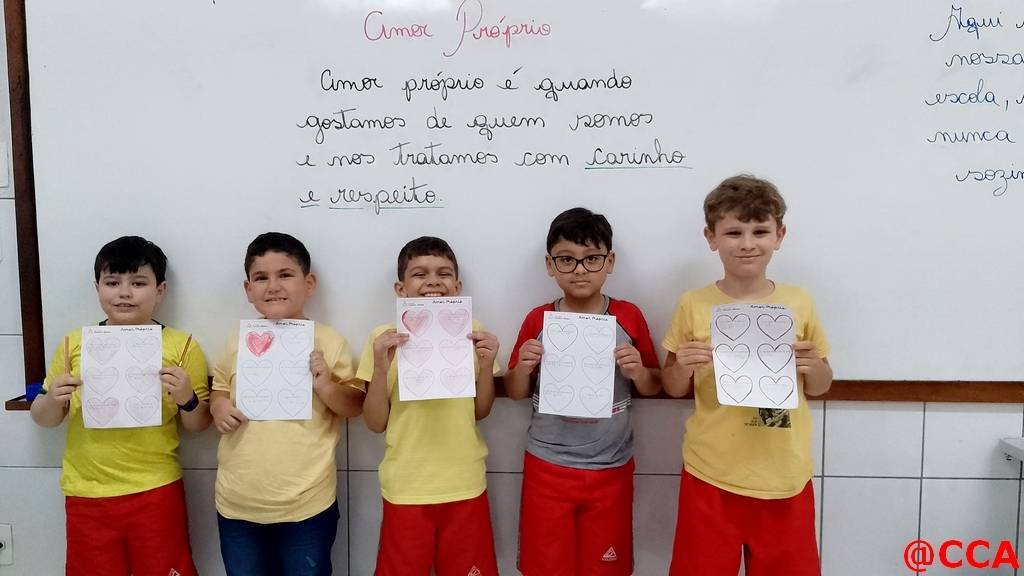 Amor Próprio
Amor próprio é quando
gostamos de quem somos
e nos tratamos com carinho
e respeito.
Aqui
nossa
escola,
nunca
Amor Próprio
Amor Próprio
Amor Próprio
Amor Próprio
Amor Próprio
@CCA